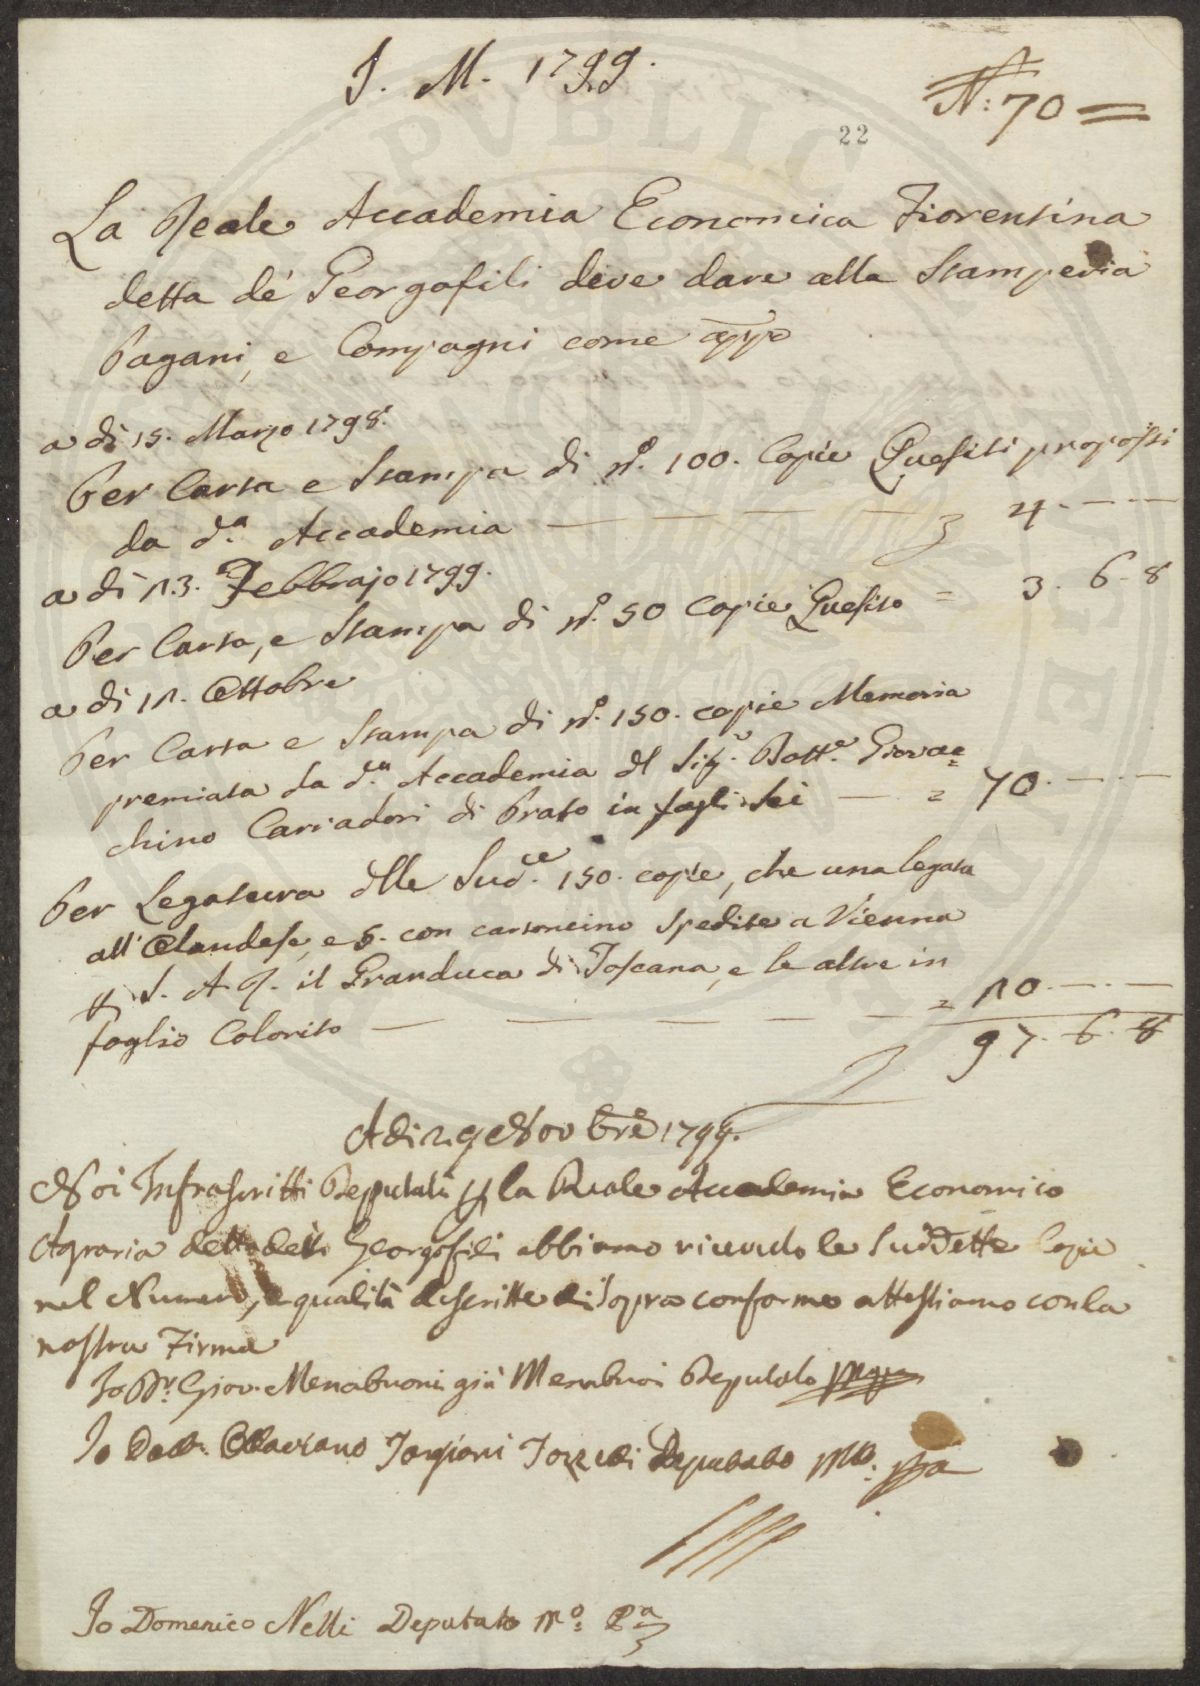 J. M. 1799.
N: 70 =
22
La Reale Accademia Economica Fiorentina
detta dé Georgofili deve dare alla Stamperia
Pagani, e Compagni come app.o
a di 15. Marzo 1798.
Per Carta e Stampa di n.o 100. Copie Quesiti proposti
da d.a Accademia — — — — 4. — —
a di 13. Febbrajo 1799.
Per Carta, e Stampa di n.o 50 Copie Quesito = 3. 6. 8
a di 11. Ottobre
Per Carta e Stampa di n.o 150. copie Memoria
premiata da d.a Accademia del Sig.r Dott.e Giovac=
chino Carradori di Prato in fogli Sei — = 70. — —
Per Legatura delle Sud.e 150. copie, che una legata
all'Olandese, e 5. con cartoncino spedite a Vienna
S. A. R. il Granduca di Toscana, e le altre in
foglio Colorito — — — — — = 10. — —
97. 6. 8
Adi 29 Novbre 1799.
Noi Infrascritti Deputati p la Reale Accademia Economico
Agraria detta dei Georgofili abbiamo ricevuto le suddette Copie
nel Numero, e qualità descritte di Sopra conforme attestiamo con la
nostra Firma
Io D.r Giov. Menabuoni già Menabuoi Deputato
Io Dott. Ottaviano Targioni Tozzetti Deputato mo. ppa
Io Domenico Nelli Deputato M.o P.a